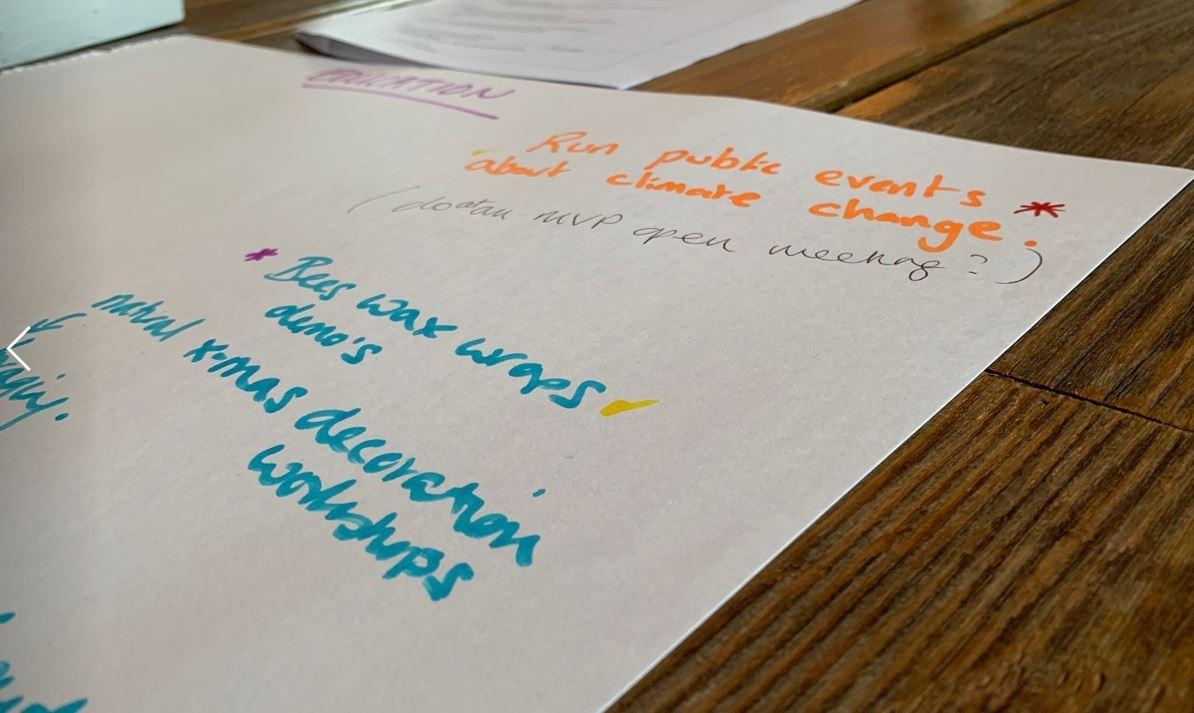 EDUCATION
Run public events *
about climate change.
MVP open meeting?)
* Bees wax wraps ✓
demo's
natural x-mas decoration
workshops